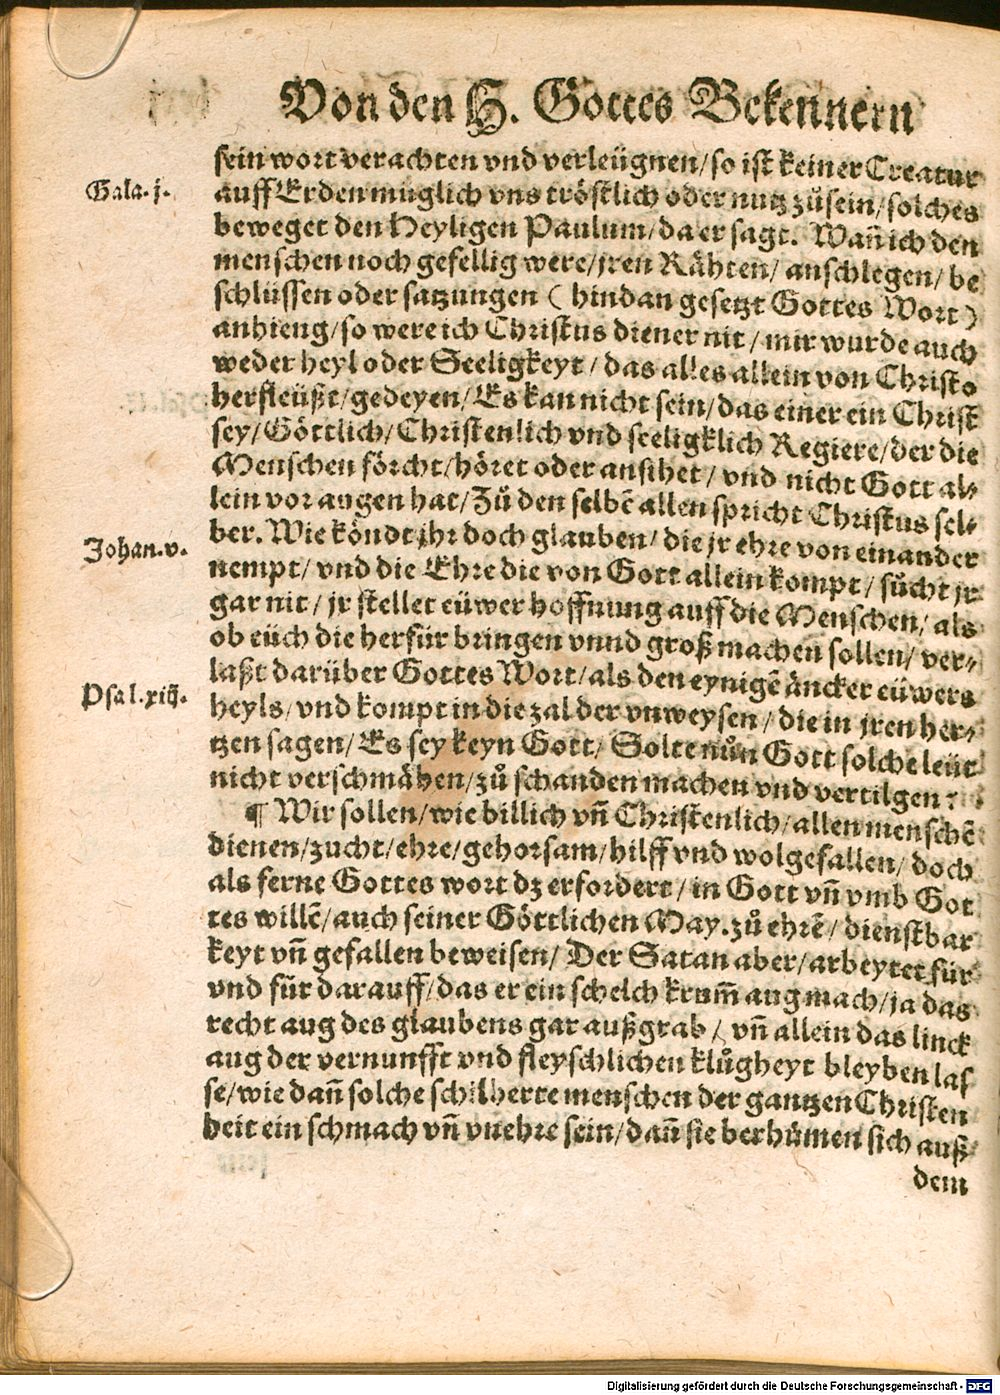 Von den H. Gottes Bekennern
sein wort verachten vnd verleügnen/ so ist keiner Creatur
Gala. j.
auff Erden müglich vns tröstlich oder nutz zůsein/ solches
beweget den Heyligen Paulum/ da er sagt. Wañ ich den
menschen noch gefellig were/ jren Rähten/ anschlegen/ be
schlüssen oder satzungen ( hindan gesetzt Gottes Wort )
anhieng/ so were ich Christus diener nit/ mir wurde auch
weder heyl oder Seeligkeyt/ das alles allein von Christo
herfleüßt/ gedeyen/ Es kan nicht sein/ das einer ein Christ
sey/ Göttlich/ Christenlich vnd seeligklich Regiere/ der die
Menschen förcht/ höret oder ansihet/ vnd nicht Gott al⸗
lein vor augen hat/ Zů den selbē allen spricht Christus sel⸗
Johan. v.
ber. Wie köndt jhr doch glauben/ die jr ehre von einander
nempt/ vnd die Ehre die von Gott allein kompt/ sůcht jr
gar nit/ jr stellet eüwer hoffnung auff die Menschen/ als
ob eüch die herfür bringen vnnd groß machen sollen/ ver⸗
Psal. xiij.
laßt darüber Gottes Wort/ als den eynigē äncker eüwers
heyls/ vnd kompt in die zal der vnweysen/ die in jren her⸗
tzen sagen/ Es sey keyn Gott/ Solte nůn Gott solche leüt
nicht verschmähen/ zů schanden machen vnd vertilgen?
¶ Wir sollen/ wie billich vñ Christenlich/ allen menschē
dienen/ zucht/ ehre/ gehorsam/ hilff vnd wolgefallen/ doch
als ferne Gottes wort dz erfordert/ in Gott vñ vmb Got
tes willē/ auch seiner Göttlichen May. zů ehrē/ dienstbar
keyt vñ gefallen beweisen/ Der Satan aber/ arbeytet für
vnd für darauff/ das er ein schelch krum̃ aug mach/ ja das
recht aug des glaubens gar außgrab/ vñ allein das linck
aug der vernunfft vnd fleyschlichen klůgheyt bleyben las
se/ wie dañ solche schilherte menschen der gantzen Christen
heit ein schmach vñ vnehre sein/ dañ sie berhümen sich auß
dem
Digitalisierung gefördert durch die Deutsche Forschungsgemeinschaft - DFG